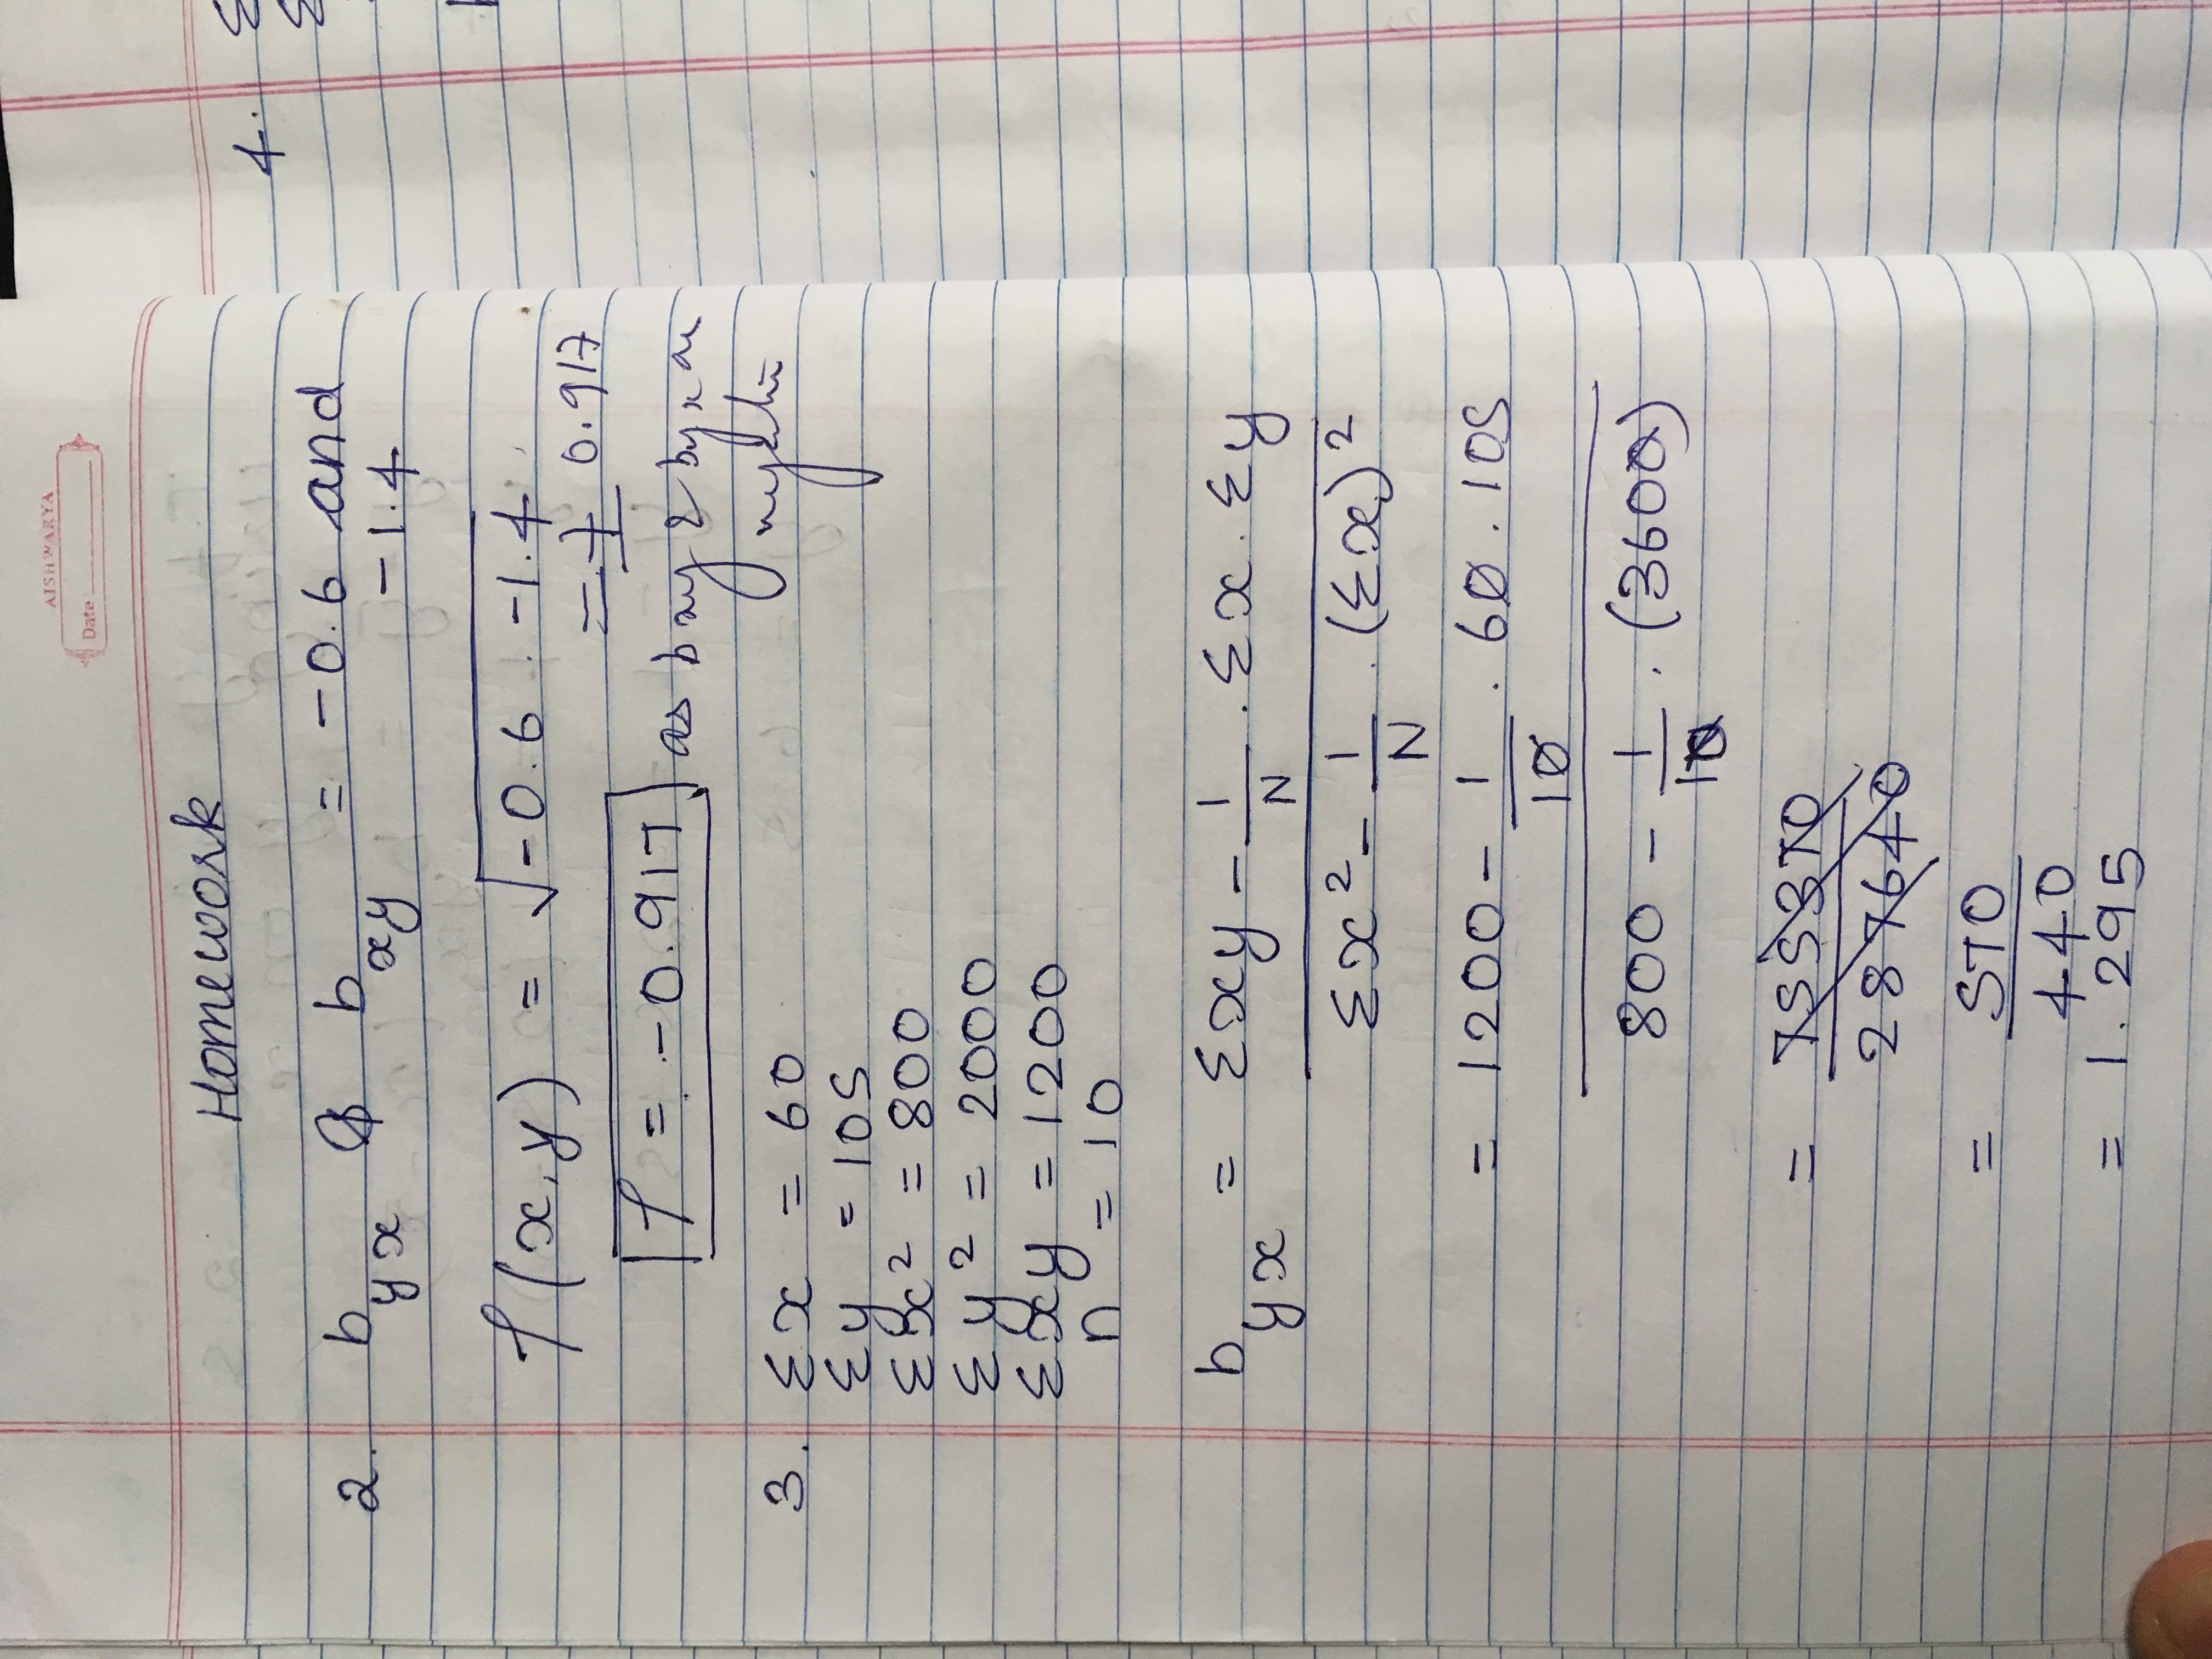 AISHWARYA
Date
Homework
2. b_yx & b_xy = -0.6 and
-1.4
r(x,y) = √-0.6 . -1.4
= ± 0.917
r = -0.917 as bxy & byx are
negative
3. Σx = 60
Σy = 105
Σx² = 800
Σy² = 2000
Σxy = 1200
n = 10
b_yx = Σxy - 1/N . Σx . Σy
Σx² - 1/N . (Σx)²
= 1200 - 1/10 . 60 . 105
800 - 1/10 . (3600)
= 755370
287640
= 570
440
= 1.295
4. Σ
Σ